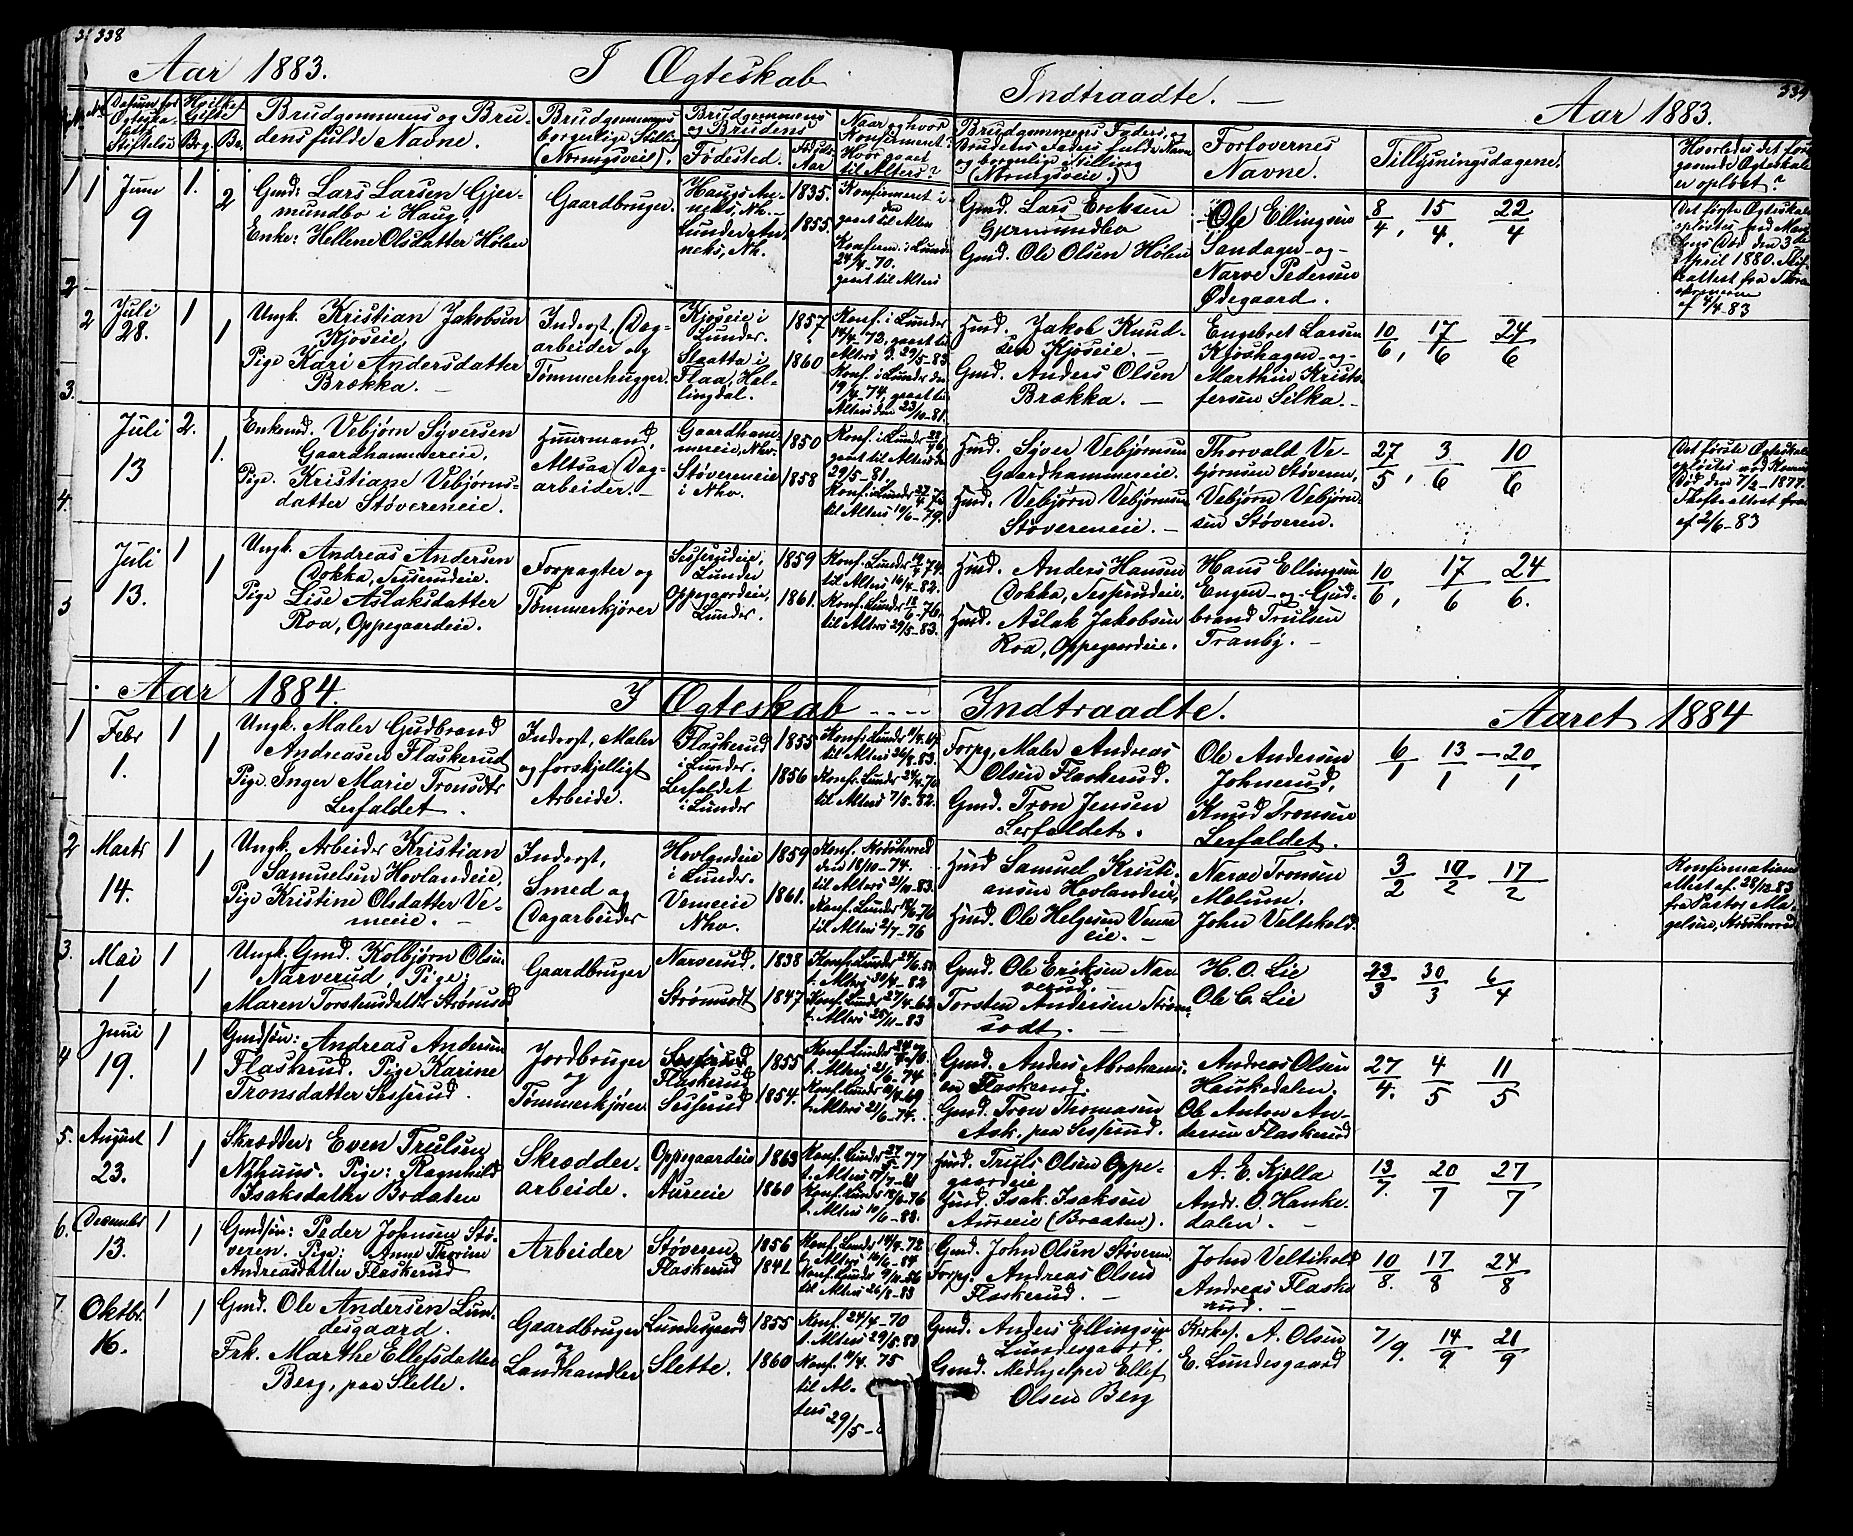 338
Aar 1883.
I Ægteskab
Indtraadte. —
Aar 1883.
339
Datum for Ægteskabets Stiftelse
Hvilket Gifte
Brg. Br.
Brudgommens og Brudens fulde Navne.
Brudgommens borgerlige Stilling (Næringsvei).
Brudgommens og Brudens Fødested.
Fødsels Aar
Naar og hvor Konfirmeret? Hvor gaaet til Alters?
Brudgommens Faders, og Brudens Faders fulde Navn og borgerlige Stilling (Næringsveie.)
Forlovernes Navne.
Tillysningsdagene.
Hvorledes det foregaaende Ægteskab er opløst?
1 1 Juni 9 1. 2
Gmd: Lars Larsen Gjermundbo i Haug;
Enke: Hellene Olsdatter Hølen
Gaardbruger.
Haugs Anneks, Nh. —
Lunder Anneks, Nh.
1835.
1855.
Konfirmeret i den
gaaet til Alters
Konfirm. i Lunder 24/4-70.
gaaet til Alters
Gmd. Lars Eriksen Gjermundbo
Gmd. Ole Olsen Hølen
Ole Ellingsen Sandager og
Narve Pedersen Ødegaard.
8/4, 15/4. 22/4
Det første Ægteskab
opløstes ved Mandens Død den 3die
April 1880. Skifteattest fra
af 3/4 83
2 2 Juli 28. 1 1
Ungk. Kristian Jakobsen Kjøseie,
Pige Kari Andersdatter Brækka. —
Inderst, Dagarbeider og Tømmerhugger.
Kjøseie i Lunder.
Slaatta i Flaa, Hallingdal.
1857.
1860
Konf. i Lunder 14/4-72, gaaet til
Alters d. 29/5-83.
Konf. i Lunder den 19/4-74, gaaet til
Alters den 23/10-81.
Husmd. Jakob Knudsen Kjøseie. —
Gmd. Anders Olsen Brækka. —
Engebret Larsen Kjøshagen og
Marthin Kristofersen Silka. —
10/6, 17/6 24/6
3. Juli 13 2. 1.
Enkemd. Vebjørn Syversen Gaardhammereie,
Pige. Kristiane Vebjørnsdatter Støvereneie.
Husmand, Altsaa Dagarbeider. —
Gaardhammereie, Nho.
Støvereneie i Nho.
1850
1858
Konf. i Lunder
gaaet til Alters d. 29/5-81.
Konf. i Lunder
til Alters 19/6-79.
Husmd. Syver Vebjørnsen Gaardhammereie.
Husmd. Vebjørn Vebjørnsen Støvereneie. —
Thorvald Vebjørnsen Støveren,
Vebjørn Vebjørnsen Støveren.
27/5, 3/6 10/6
Det første Ægteskab
opløstes ved Konens
Død den 7/2-1877.
Skifteattest fra
af 2/6-83
4. Juli 13. 1 1
Ungk. Andreas Andersen Dokka, Sesserudeie.
Pige Lise Aslaksdatter Roa, Oppegaardeie.
Forpagter og Tømmerkjører
Sesserudeie, Lunder
Oppegaardeie, Lunder.
1859
1861.
Konf. Lunder 19/4 74.
til Alters 16/4-82.
Konf. Lunder 18/6-76.
til Alters 29/5-83.
Husmd. Anders Hansen Dokka, Sesserudeie.
Husmd. Aslak Jakobsen Roa, Oppegaardeie.
Hans Ellingsen Engen og Gudbrand Trulsen Tranby. —
10/6, 17/6 24/6.
Aar 1884.
I Ægteskab ....
Indtraadte.
Aaret 1884
1 Febr 1. 1 1
Ungk. Maler Gudbrand Andreasen Flaskerud
Pige. Inger Marie Tronsdtr Lerfaldet.
Inderst, Maler og forskjelligt Arbeide.
Flaskerud i Lunder.
Lerfaldet i Lunder
1855
1856
Konf. Lunder
til Alters 26/8.83.
Konf. Lunder 24/4.70
til Alters 7/5.82.
Forpg. Maler Andreas Olsen Flaskerud.
Gmd. Tron Jensen Lerfaldet.
Ole Andersen Johnerud,
Knud Tronsen Lerfaldet.
6/1 13/1 — 20/1
2 Marts 14. 1 1
Ungk. Arbeider Kristian Samuelsen Hovlandeie,
Pige Kristine Olsdatter Vemeeie. —
Inderst, Smed og Dagarbeider
Hovlandeie i Lunder.
Vemeeie Nho.
1859
1861.
Konf.
den 18/10-74.
til Alters 21/10-83.
Konf. Lunder 18/6-76
til Alters 2/7-76
Husmd Samuel Kristiansen Hovlandeie,
Husmd. Ole Helgesen Vemeeie. —
Narve Tronsen Melum,
John Veltihold.
3/2 10/2 17/2
Konfirmations
attest af. 28/12 83
fra Pastor Magelsen,
3. Mai 1 1 1
Ungk: Gmd. Kolbjørn Olsen Narverud, Pige:
Maren Torstensdattr Strømsødt
Gaardbruger
Narverud.
Strømsødt
1838
1847
Konf. Lunder
t. Alters 30/4-82
Konf. Lunder 27/4-62
t. Alters 25/11-83
Gmd. Ole Eriksen Narverud. —
Torsten Andersen Strømsødt. —
H. O. Lie
Ole C. Lie
23/3 30/3 6/4
4 Juni 19. 1 1
Gmdsøn: Andreas Andersen Flaskerud. Pige Karine
Tronsdatter Sesserud.
Jordbruger og Tømmerkjører
Flaskerud
Sesserud
1855
1854.
Konf. Lunder
t. Alters 21/6-74
Konf. Lunder
t. Alters 21/6-74.
Gmd. Anders Abrahamsen Flaskerud.
Gmd. Tron Thomasen Ask. paa Sesserud.
Andreas Olsen Heieksdalen,
Ole Anton Andersen Flaskerud
27/4. 4/5 11/5
5. August 23. 1 1
Skrædder: Even Trulsen Nyhuus. Pige: Ragnhild
Isaksdatter Bråaten
Skrædderarbeide.
Oppegaardeie
Aureeie
1863
1860
Konf. Lunder 27/5-77
t. Alters 17/7-81
Konf. Lunder 18/6-76
t. Alters 10/6-83.
Husmd. Truls Olsen Oppegaardeie
Husmd. Isak Isaksen Aureeie (Braaten).
A. E. Kjella
Andr. O. Haukedalen. —
13/7. 20/7 27/7
6. December 13. 1 1
Gmdsøn: Peder Johnsen Støveren. Pige: Anne Thorine
Andreasdatter Flaskerud
Arbeider
Støveren
Flaskerud
1856
1841
Konf. Lunder 14/4-72
t. Alters 16/6-84
Konf. Lunder 9/11-56
til Alters 26/8-83
Gmd. John Olsen Støveren
Forpg. Andreas Olsen Flaskerud. —
John Veltihold
Andreas Flaskerud. —
10/8. 17/8 24/8
7. Oktbr. 16. 1 1
Gmd. Ole Andersen Lundesgaard.
Frk. Marthe Ellefsdatter Berg, paa Slette.
Gaardbruger og Landhandler
Lundesgaard
Slette.
1855
1860
Konf. 24/4-70
t. Alters 29/5.83
Konf. 11/4. 75
til Alters 29/5-
Gmd. Anders Ellingsen Lundesgaard.
Gmd. Medhjelper Ellef Olsen Berg
Kirkes. A. Olsen
E. Lundesgaard
7/9. 14/9 21/9